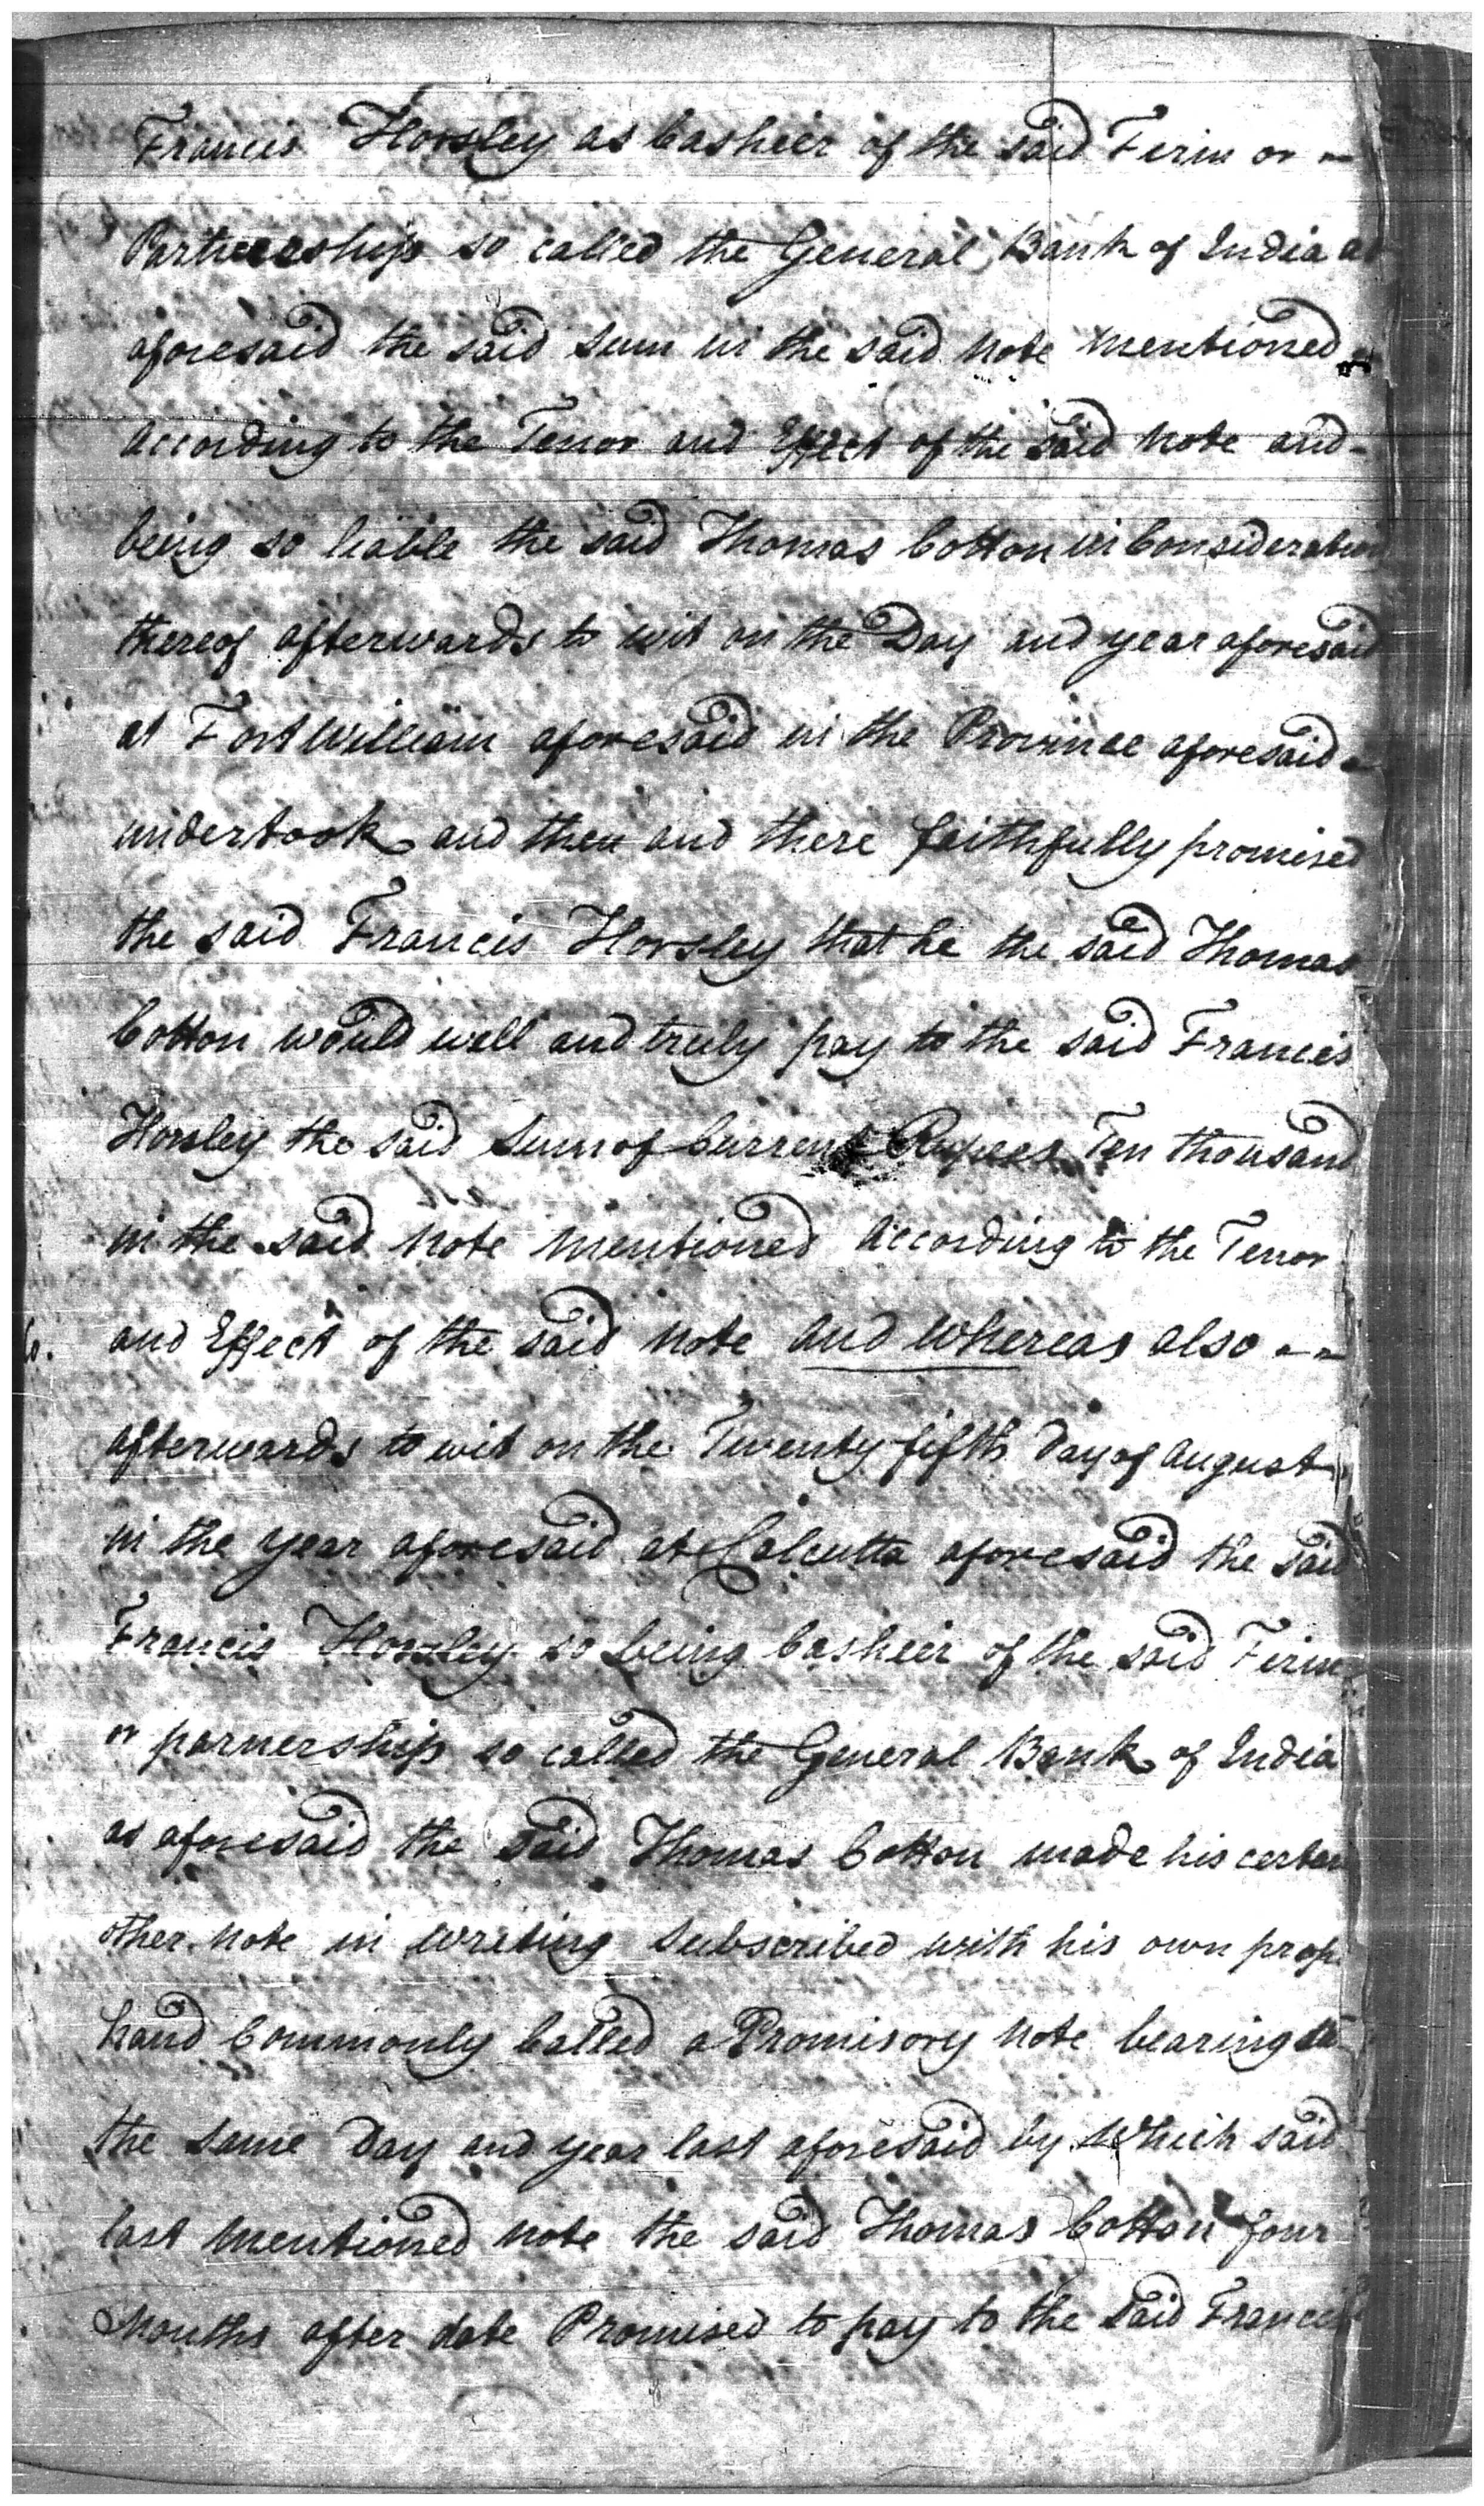 Francis Horsley as Casheer of the said Firm or
Partnership so called the General Bank of India as
aforesaid the said Sum in the said Note mentioned
according to the Tenor and Effect of the said Note and
being so liable the said Thomas Cotton in Consideration
thereof afterwards to wit on the Day and year aforesaid
at Fort William aforesaid in the Province aforesaid
undertook and then and there faithfully promised
the said Francis Horsley that he the said Thomas
Cotton would well and truly pay to the said Francis
Horsley the said Sum of Current Rupees Ten thousand
in the said Note mentioned according to the Tenor
and Effect of the said Note and whereas also
afterwards to wit on the Twenty fifth Day of August
in the year aforesaid at Calcutta aforesaid the said
Francis Horsley so being Casheir of the said Firm
or parnership so called the General Bank of India
as aforesaid the said Thomas Cotton made his certain
other Note in writing Subscribed with his own prop
hand Commonly Called a Promisory Note bearing
the same Day and year last aforesaid by which said
last mentioned Note the said Thomas Cotton four
Months after date Promised to pay to the said Francis